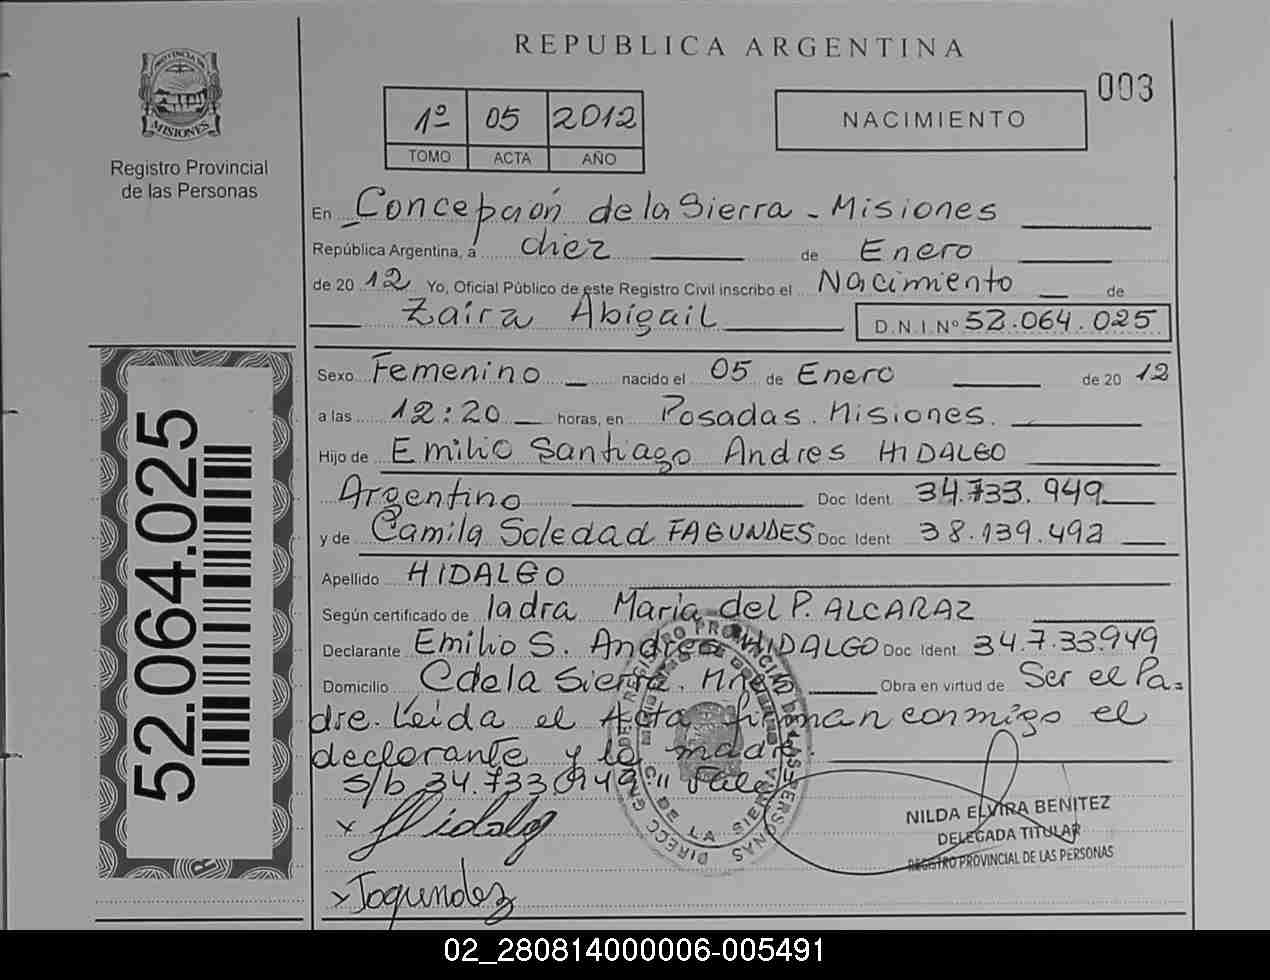 REPUBLICA ARGENTINA
003
PROVINCIA DE MISIONES
Registro Provincial
de las Personas
1º 05 2012
TOMO ACTA AÑO
NACIMIENTO
En Concepción de la Sierra - Misiones
República Argentina, a diez de Enero
de 20 12 Yo, Oficial Público de este Registro Civil inscribo el Nacimiento de
Zaira Abigail D.N.I.Nº 52.064.025
Sexo Femenino nacido el 05 de Enero de 20 12
a las 12:20 horas, en Posadas. Misiones.
Hijo de Emilio Santiago Andres HIDALGO
Argentino Doc. Ident. 34.733.949
y de Camila Soledad FAGUNDES Doc. Ident. 38.139.492
Apellido HIDALGO
Según certificado de la dra Maria del P. ALCARAZ
Declarante Emilio S. Andres HIDALGO Doc. Ident. 34.733.949
Domicilio C de la Sierra. Mnes Obra en virtud de Ser el Pa-
dre. Leida el Acta firman conmigo el
declarante y la madre.
s/b 34.733.949 " Vale
x Hidalgo
x Fagundez
NILDA ELVIRA BENITEZ
DELEGADA TITULAR
REGISTRO PROVINCIAL DE LAS PERSONAS
52.064.025
02_280814000006-005491